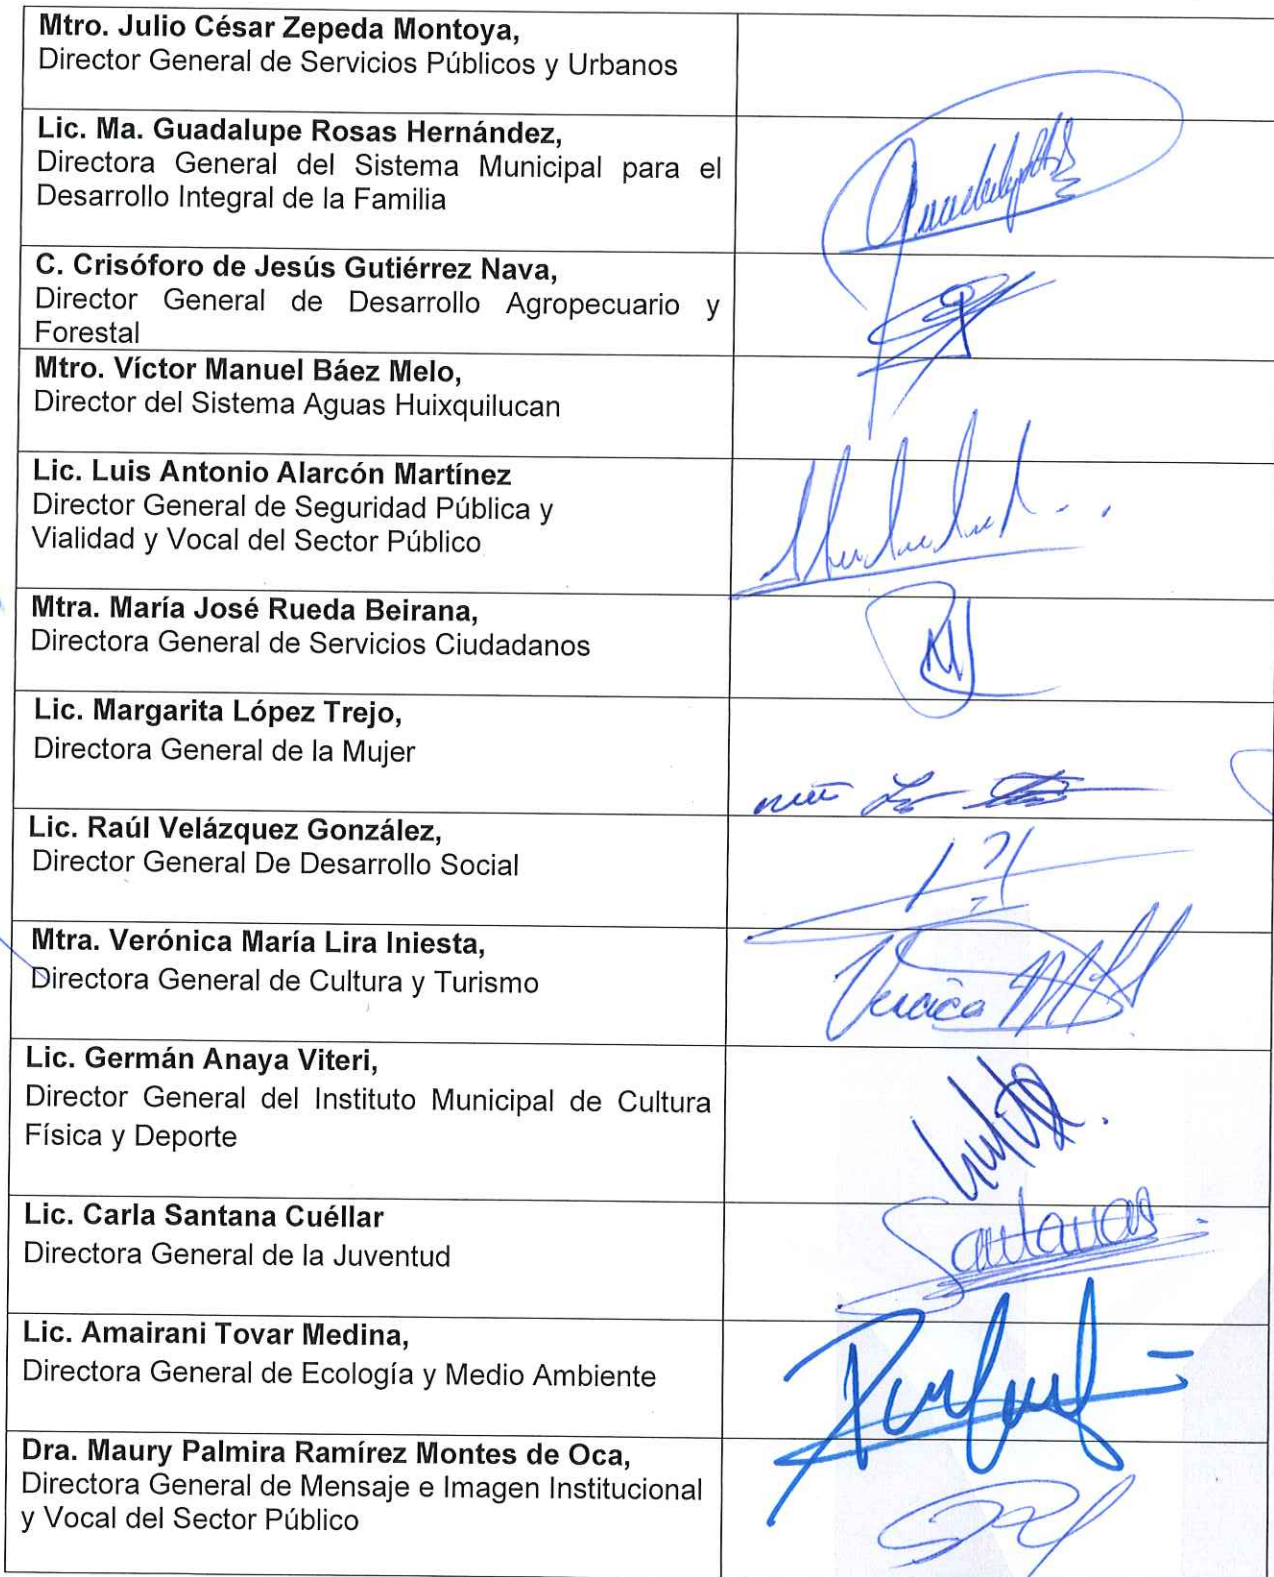 Mtro. Julio César Zepeda Montoya,
Director General de Servicios Públicos y Urbanos
Lic. Ma. Guadalupe Rosas Hernández,
Directora General del Sistema Municipal para el
Desarrollo Integral de la Familia
C. Crisóforo de Jesús Gutiérrez Nava,
Director General de Desarrollo Agropecuario y
Forestal
Mtro. Víctor Manuel Báez Melo,
Director del Sistema Aguas Huixquilucan
Lic. Luis Antonio Alarcón Martínez
Director General de Seguridad Pública y
Vialidad y Vocal del Sector Público
Mtra. María José Rueda Beirana,
Directora General de Servicios Ciudadanos
Lic. Margarita López Trejo,
Directora General de la Mujer
Lic. Raúl Velázquez González,
Director General De Desarrollo Social
Mtra. Verónica María Lira Iniesta,
Directora General de Cultura y Turismo
Lic. Germán Anaya Viteri,
Director General del Instituto Municipal de Cultura
Física y Deporte
Lic. Carla Santana Cuéllar
Directora General de la Juventud
Lic. Amairani Tovar Medina,
Directora General de Ecología y Medio Ambiente
Dra. Maury Palmira Ramírez Montes de Oca,
Directora General de Mensaje e Imagen Institucional
y Vocal del Sector Público